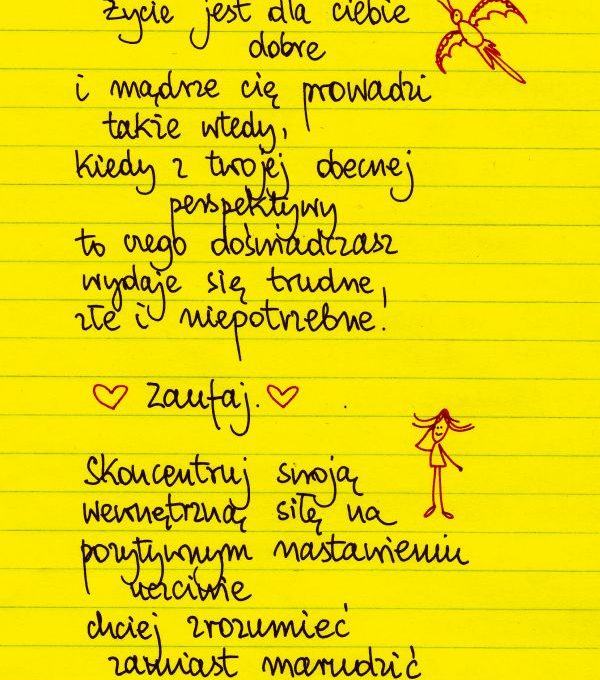 Życie jest dla ciebie
dobre
i mądrze cię prowadzi
także wtedy,
kiedy z twojej obecnej
perspektywy
to czego doświadczasz
wydaje się trudne,
złe i niepotrzebne!
Zaufaj.
Skoncentruj swoją
wewnętrzną siłę na
pozytywnym nastawieniu
uczciwie
chciej zrozumieć
zamiast marudzić